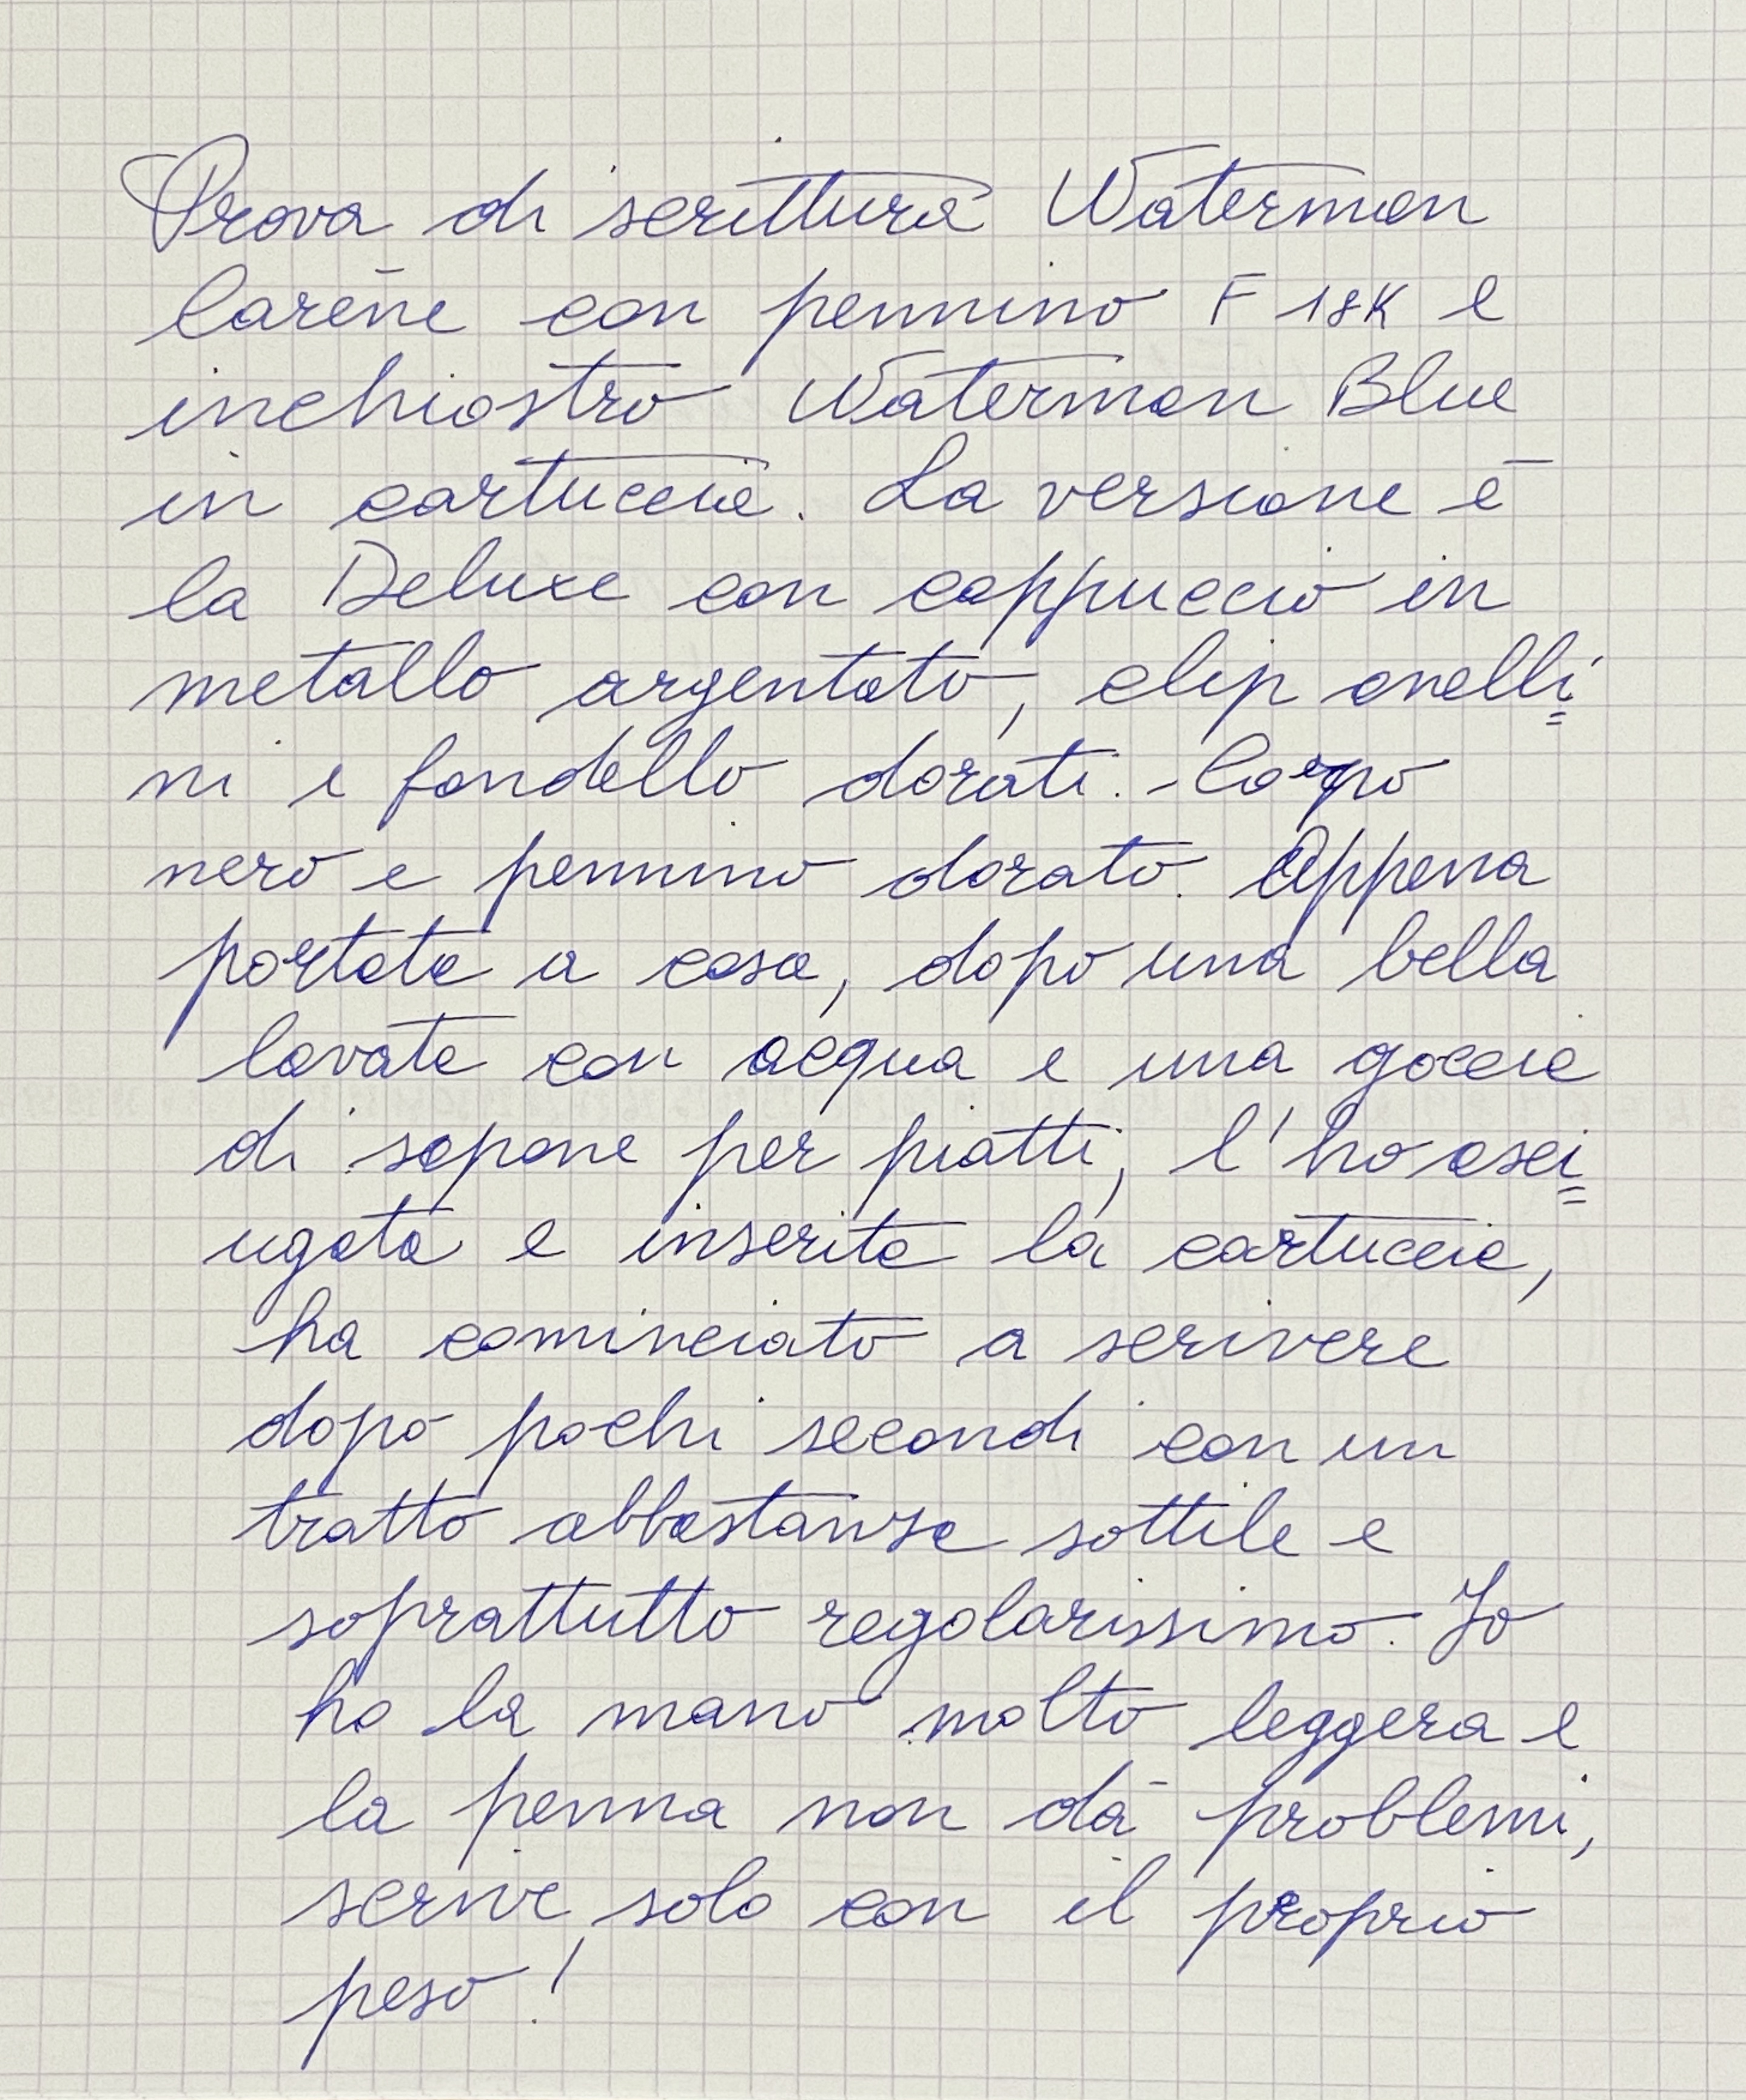 Prova di scrittura Waterman
Carène con pennino F 18K e
inchiostro Waterman Blue
in cartuccia. La versione è
la Deluxe con cappuccio in
metallo argentato, clip anelli=
ni e fondello dorati. Corpo
nero e pennino dorato. Appena
portata a casa, dopo una bella
lavata con acqua e una goccia
di sapone per piatti, l'ho asci=
ugata e inserita la cartuccia,
ha cominciato a scrivere
dopo pochi secondi con un
tratto abbastanza sottile e
soprattutto regolarissimo. Io
ho la mano molto leggera e
la penna non dà problemi,
scrive solo con il proprio
peso!